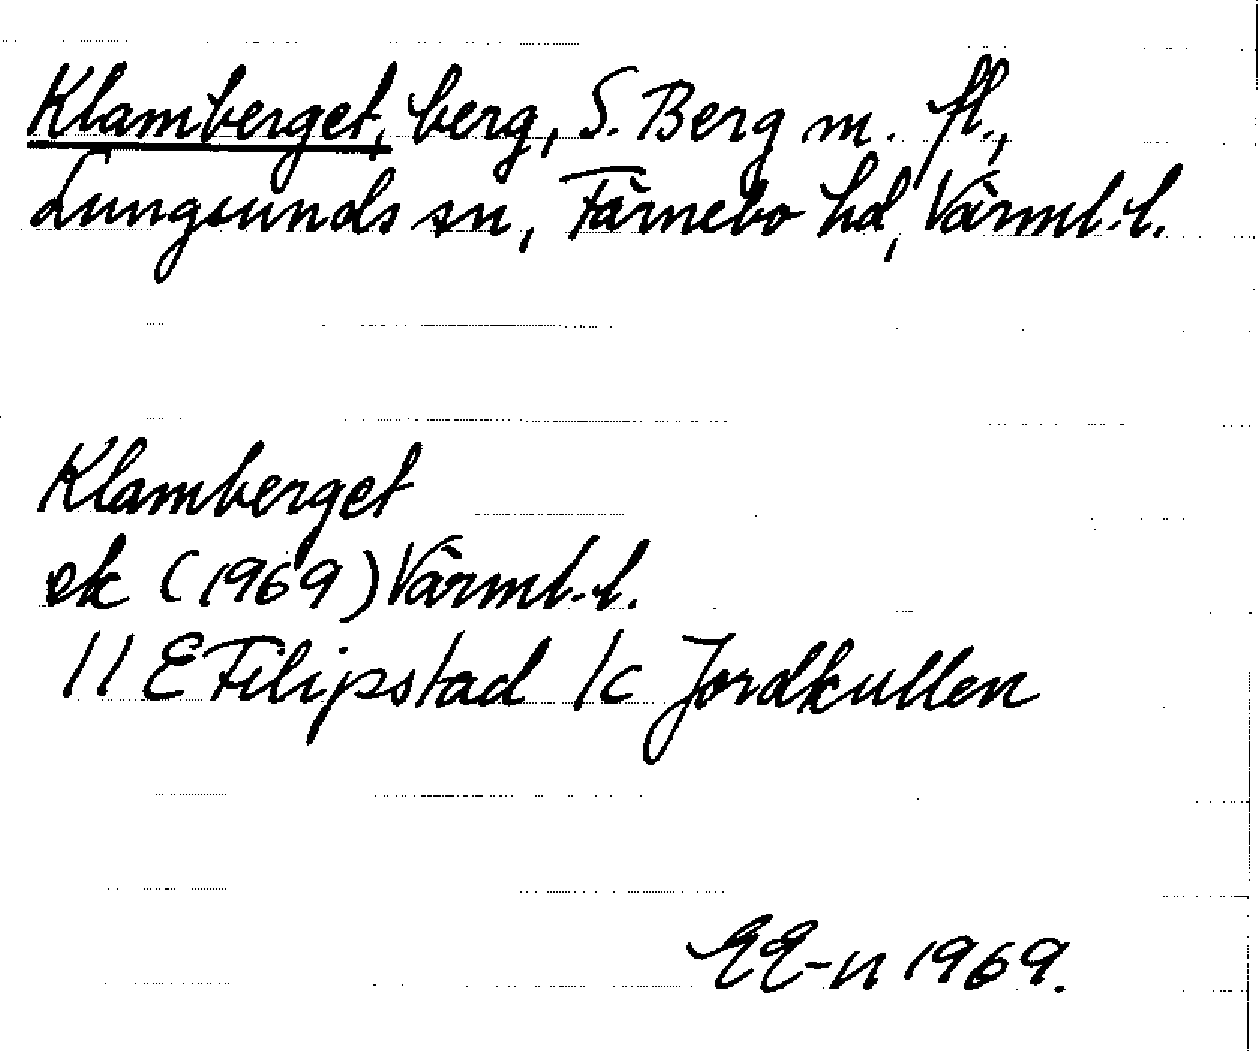 Klamberget, berg, S. Berg m. fl.,
Lungsunds sn, Färnebo hd, Värml. l.
Klamberget
ek (1969) Värml. l.
11 E Filipstad 1c Jordkullen
EE-n 1969.